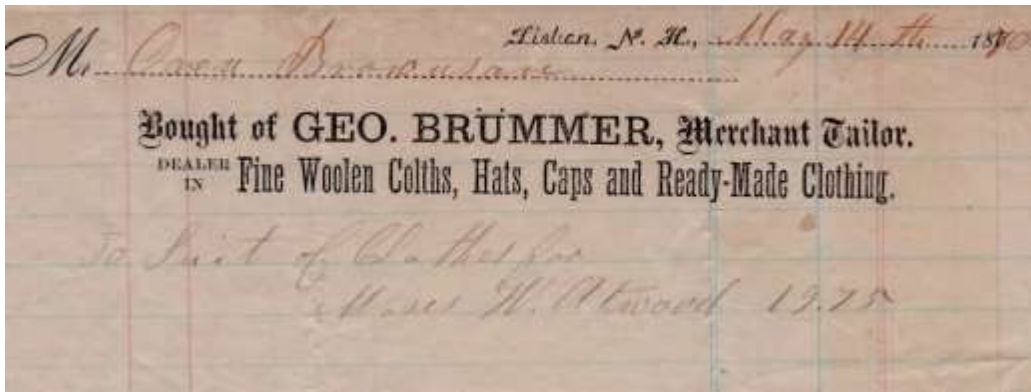 Lisbon, N. H., May 14th 18
M. Owen
Bought of GEO. BRUMMER, Merchant Tailor.
DEALER IN Fine Woolen Colths, Hats, Caps and Ready-Made Clothing.
To Suit of Clothes for
Moses W. Atwood 19.75